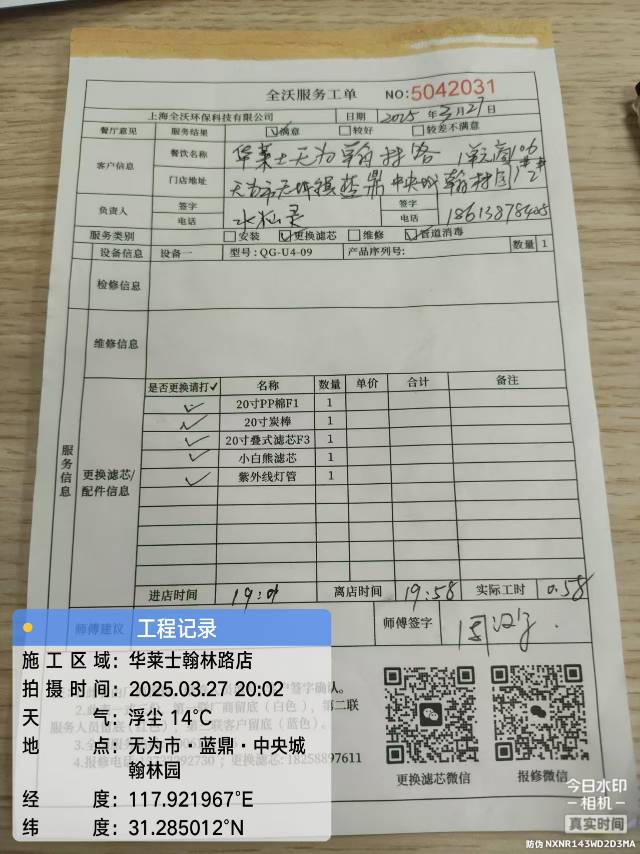 全沃服务工单 NO:5042031
上海全沃环保科技有限公司 日期 2025年3月27日
餐厅意见 服务结果 ☑满意 □较好 □较差不满意
客户信息 餐饮名称 华莱士无为翰林路
门店地址 中央城翰林园
负责人 签字 签字
电话 电话
服务类别 □安装 ☑更换滤芯 □维修 ☑管道消毒
设备信息 设备一 型号:QG-U4-09 产品序列号: 数量 1
检修信息
维修信息
服务信息
更换滤芯/配件信息
是否更换请打✓ 名称 数量 单价 合计 备注
✓ 20寸PP棉F1 1
✓ 20寸炭棒 1
✓ 20寸叠式滤芯F3 1
✓ 小白熊滤芯 1
✓ 紫外线灯管 1
进店时间 离店时间 19:58 实际工时 0.58
师傅建议 师傅签字
工程记录
施工区域:华莱士翰林路店
拍摄时间:2025.03.27 20:02
天气:浮尘 14℃
地点:无为市·蓝鼎·中央城
翰林园
经度:117.921967°E
纬度:31.285012°N
更换滤芯微信 报修微信
今日水印
相机
真实时间
防伪 NXNR143WD2D3MA